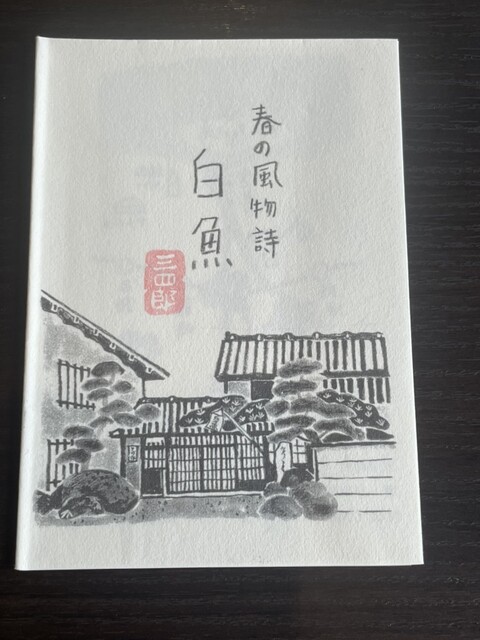 春の風物詩
白魚
三四郎